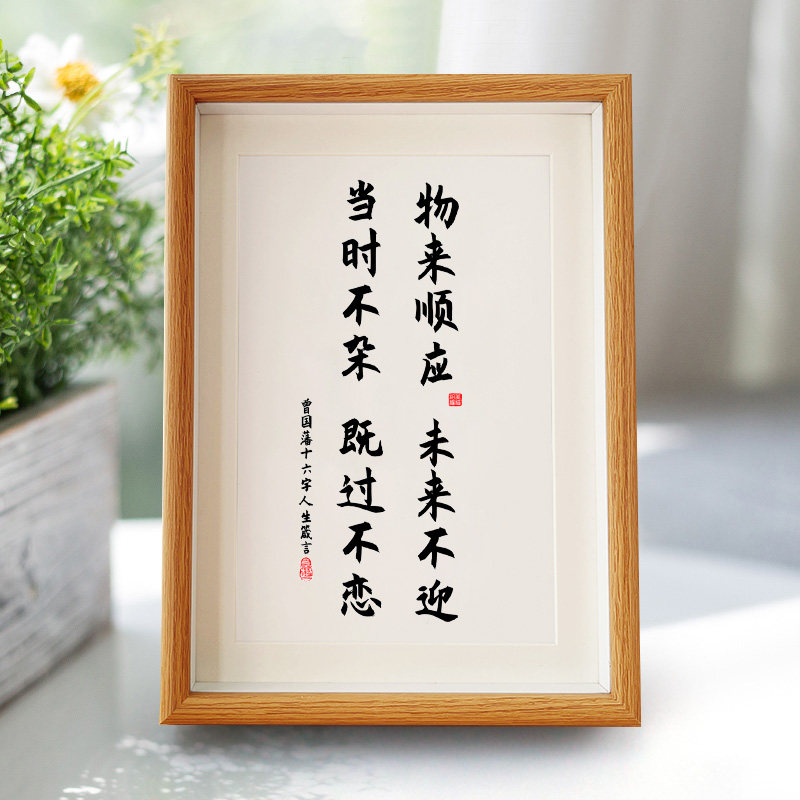 物来顺应 未来不迎
当时不杂 既过不恋
曾国藩十六字人生箴言